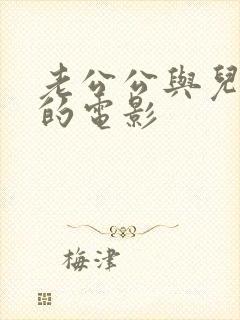 老公公與兒
的電影
梅津